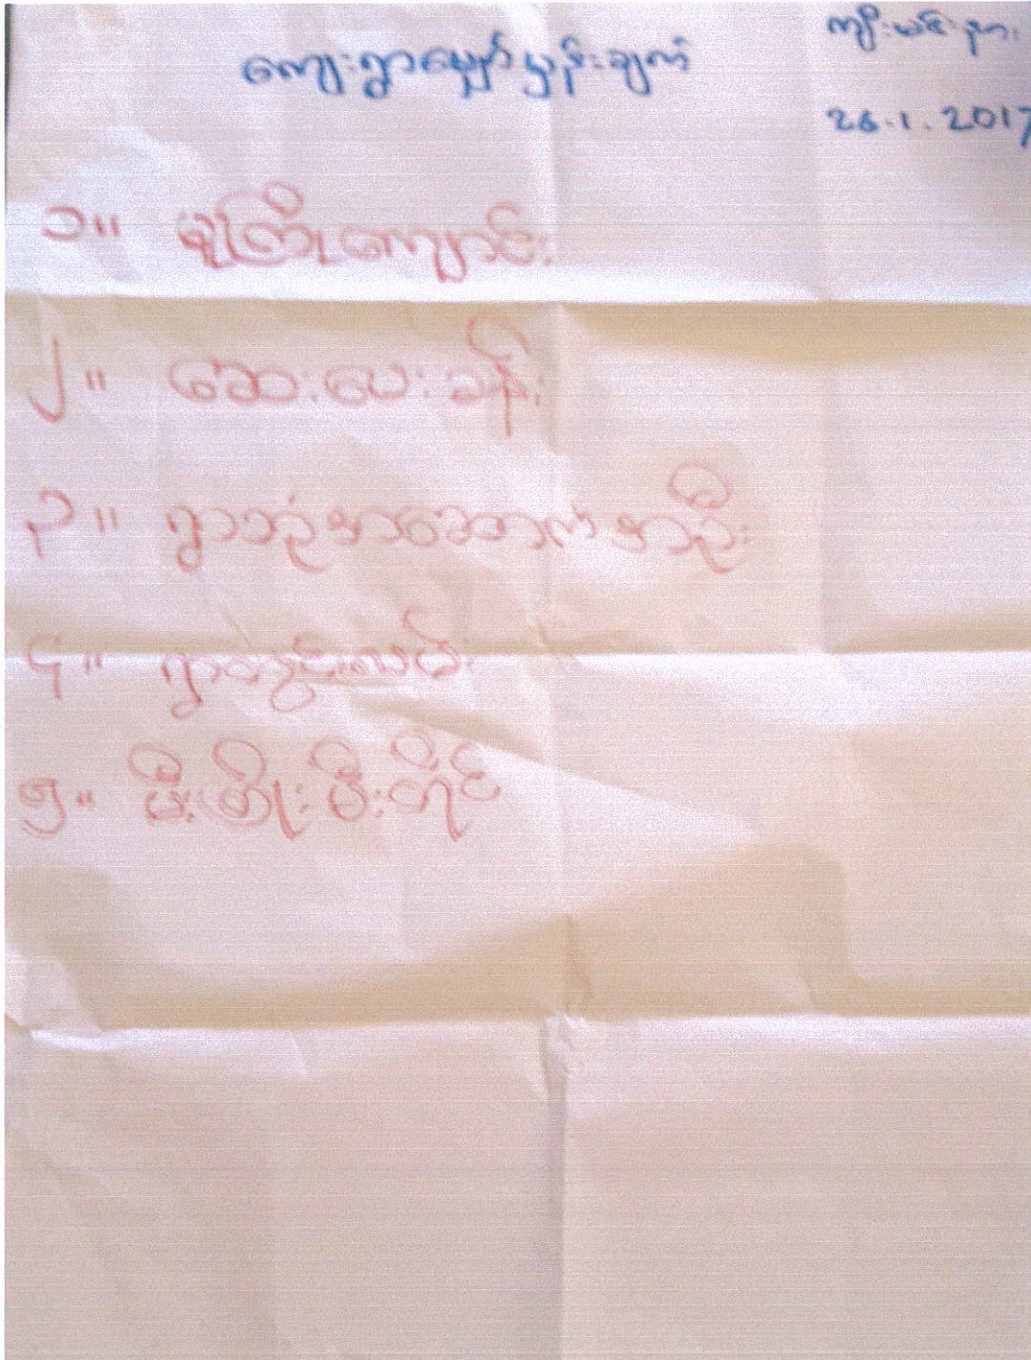 ကျေးရွာမျှော်မှန်းချက်
ကျီးမင်း
26.1.2017
၁။ မူကြိုကျောင်း
၂။ ဆေးပေးခန်း
၃။ ရွာဘုံအဆောက်အဦး
၄။ ရွာတွင်းလမ်း
၅။ မီးကြိုးမီးတိုင်